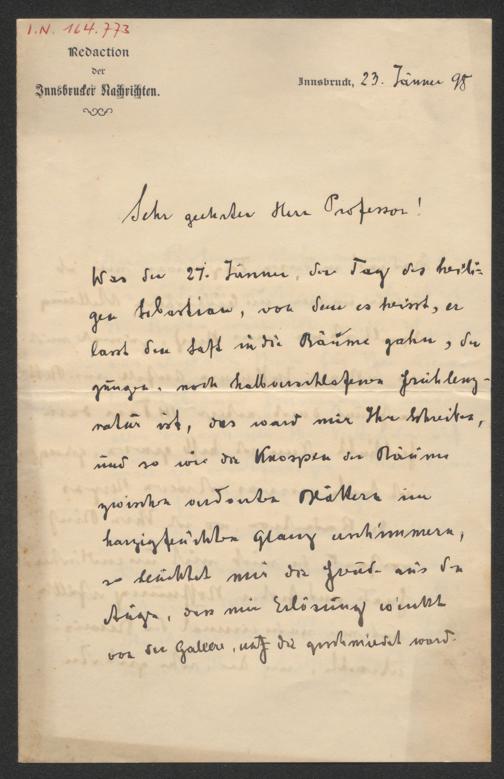 I.N. 164.773
Redaction
der
Innsbrucker Nachrichten.
Innsbruck, 23. Jänner 98
Sehr geehrter Herr Professor!
Was der 21. Jänner, der Tag des heili-
gen Sebastian, von dem es heisst, er
lasst den Saft in die Bäume gehn, der
jungen, noch halbverschlafenen Frühlings-
natur ist, das ward mir Ihr Schreiben,
und so wie die Knospen der Bäume
zwischen verdorrten Blättern im
harzigfeuchten Glanz
so leuchtet mir die Freude aus den
Augen, dass mir Erlösung winkt
von der Galeere, auf die geschmiedet ward